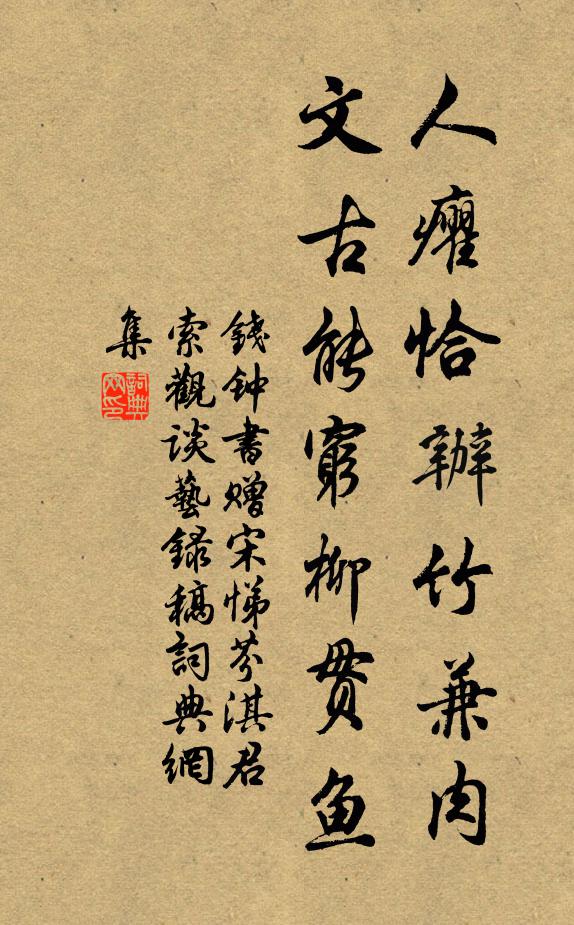 人癯恰辦竹兼肉
文古能窮柳贯鱼
錢钟書赠宋悌芬淇君
索觀谈藝録稿詞典網
集
詞典網印